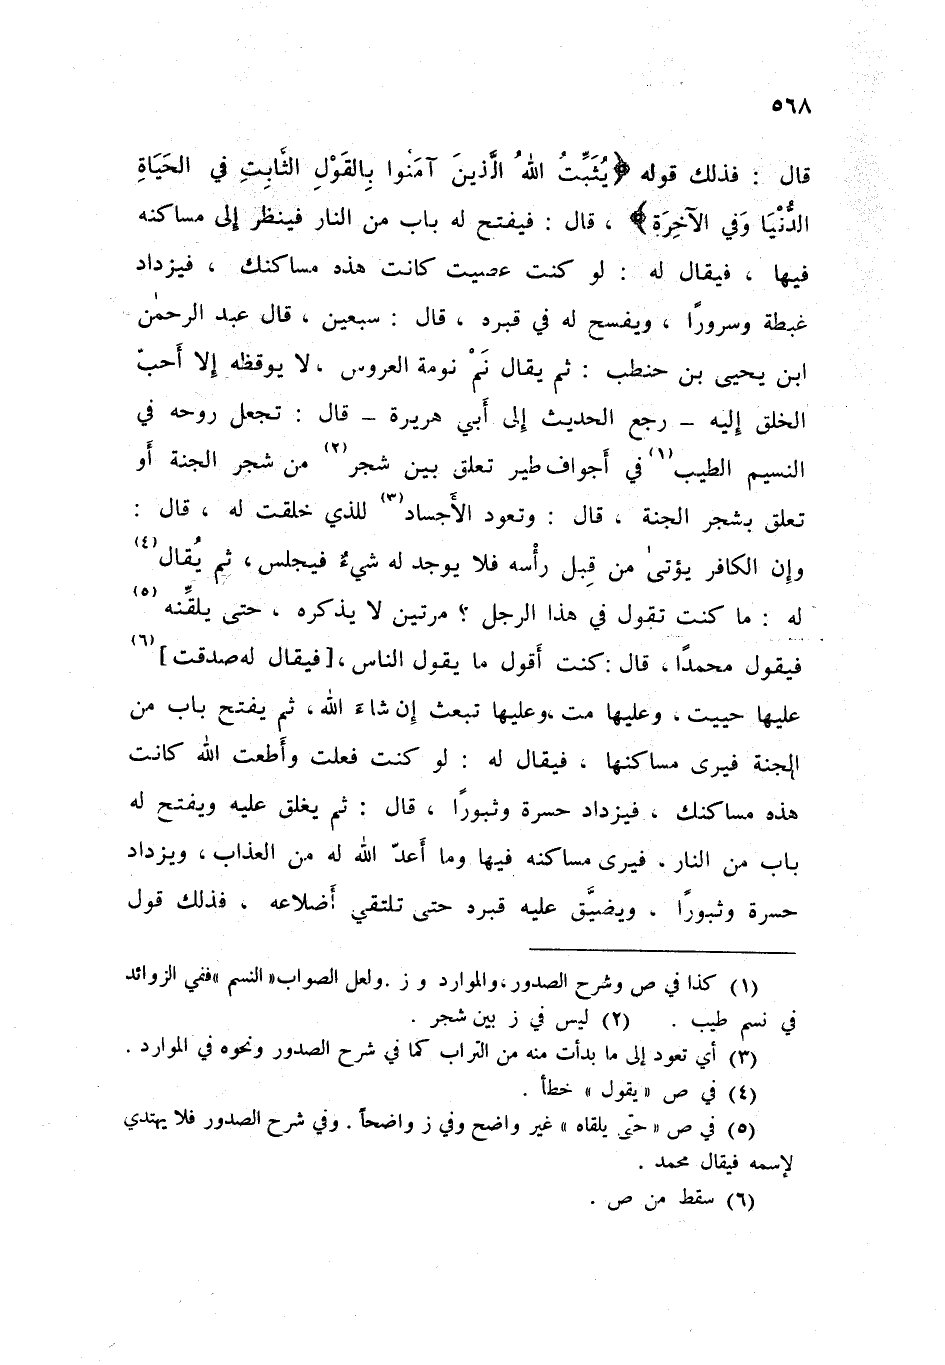 ٥٦٨
قال : فذلك قوله ﴿يُثَبِّتُ اللهُ الَّذينَ آمَنُوا بِالقَوْلِ الثَّابِتِ في الحَيَاةِ
الدُّنْيَا وَفي الآخِرَة﴾ ، قال : فيفتح له باب من النار فينظر إلى مساكنه
فيها ، فيقال له : لو كنت عصيت كانت هذه مساكنك ، فيزداد
غبطة وسرورًا ، ويفسح له في قبره ، قال : سبعين ، قال عبد الرحمٰن
ابن يحيى بن حنطب : ثم يقال نَمْ نومة العروس ، لا يوقظه إلا أَحبّ
الخلق إليه – رجع الحديث إلى أَبي هريرة – قال : تجعل روحه في
النسيم الطيب(١) في أَجواف طير تعلق بين شجر(٢) من شجر الجنة أَو
تعلق بشجر الجنة ، قال : وتعود الأَجساد(٣) للذي خلقت له ، قال :
وإن الكافر يؤتىٰ من قِبل رأْسه فلا يوجد له شيءٌ فيجلس ، ثم يُقال(٤)
له : ما كنت تقول في هذا الرجل ؟ مرتين لا يذكره ، حتى يلقِّنه(٥)
فيقول محمدًا ، قال : كنت أَقول ما يقول الناس ، [فيقال له صدقت](٦)
عليها حييت ، وعليها مت ،وعليها تبعث إن شاءَ الله ، ثم يفتح باب من
الجنة فيرى مساكنها ، فيقال له : لو كنت فعلت وأَطعت الله كانت
هذه مساكنك ، فيزداد حسرة وثبورًا ، قال : ثم يغلق عليه ويفتح له
باب من النار . فيرى مساكنه فيها وما أَعدّ الله له من العذاب ، ويزداد
حسرة وثبورًا . ويضيَّق عليه قبره حتى تلتقي أَضلاعه ، فذلك قول
(١) كذا في ص وشرح الصدور ،والموارد و ز .ولعل الصواب« النسم »ففي الزوائد
في نسم طيب . (٢) ليس في ز بين شجر .
(٣) أي تعود إلى ما بدأت منه من التراب كما في شرح الصدور ونحوه في الموارد .
(٤) في ص « يقول » خطأ .
(٥) في ص « حتّى يلقاه » غير واضح وفي ز واضحاً . وفي شرح الصدور فلا يهتدي
لإسمه فيقال محمد .
(٦) سقط من ص .